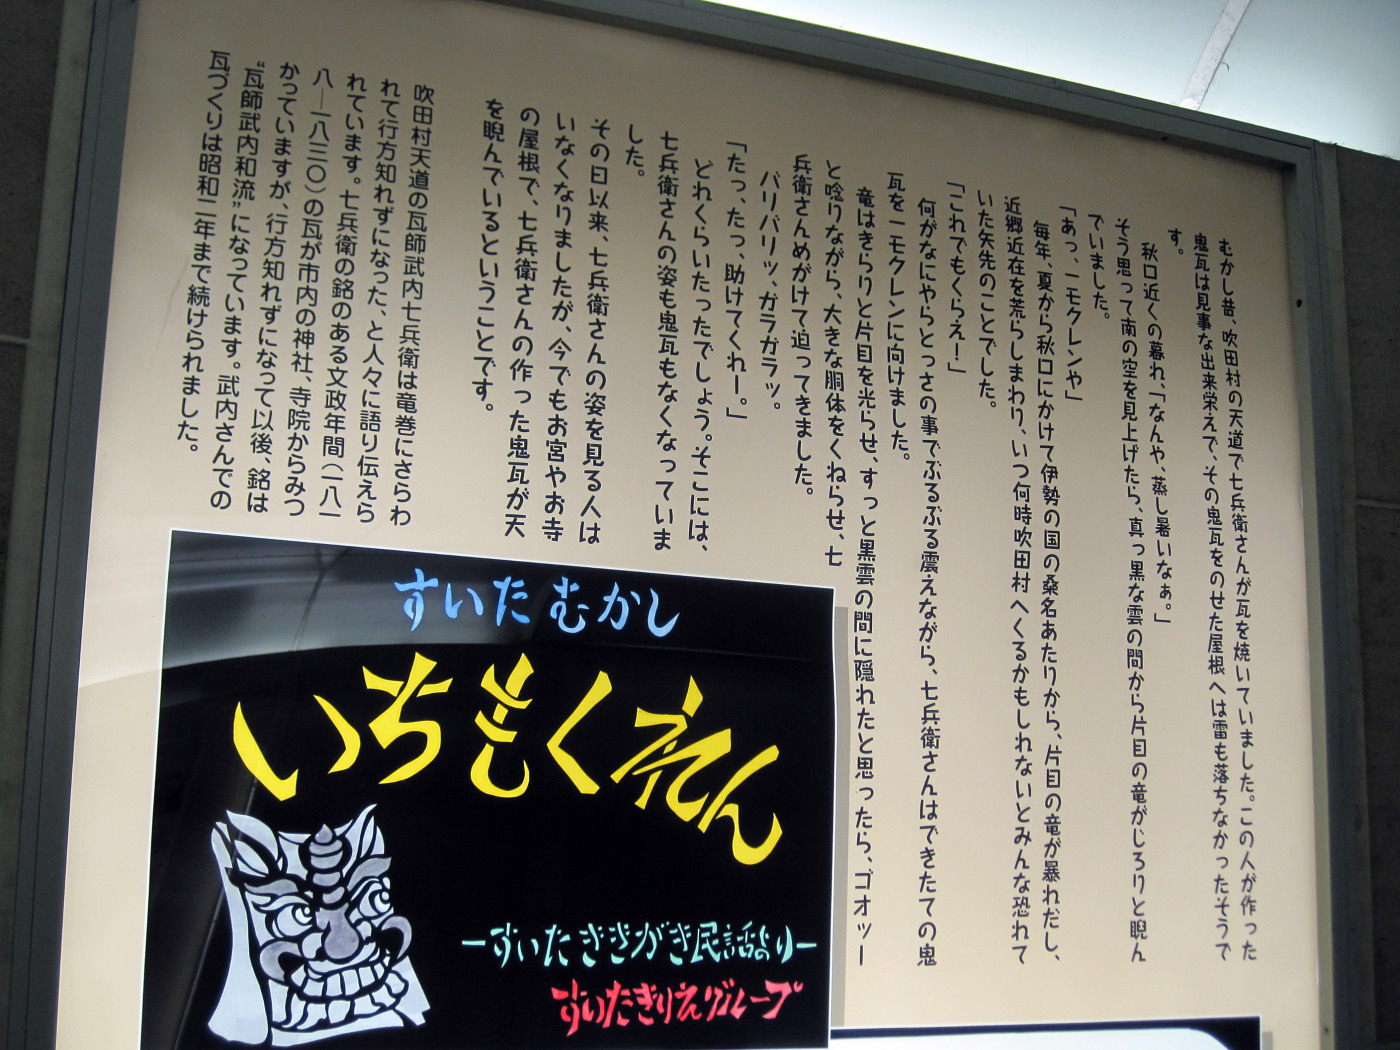 むかし昔、吹田村の天道で七兵衛さんが瓦を焼いていました。この人が作った
鬼瓦は見事な出来栄えで、その鬼瓦をのせた屋根へは雷も落ちなかったそうで
す。
秋口近くの暮れ、「なんや、蒸し暑いなぁ。」
そう思って南の空を見上げたら、真っ黒な雲の間から片目の竜がじろりと睨ん
でいました。
「あっ、一モクレンや」
毎年、夏から秋口にかけて伊勢の国の桑名あたりから、片目の竜が暴れだし、
近郷近在を荒らしまわり、いつ何時吹田村へくるかもしれないとみんな恐れて
いた矢先のことでした。
「これでもくらえ！」
何がなにやらとっさの事でぶるぶる震えながら、七兵衛さんはできたての鬼
瓦を一モクレンに向けました。
竜はきらりと片目を光らせ、すっと黒雲の間に隠れたと思ったら、ゴオッー
と唸りながら、大きな胴体をくねらせ、七
兵衛さんめがけて迫ってきました。
バリバリッ、ガラガラッ。
「たっ、たっ、助けてくれー。」
どれくらいたったでしょう。そこには、
七兵衛さんの姿も鬼瓦もなくなっていま
した。
その日以来、七兵衛さんの姿を見る人は
いなくなりましたが、今でもお宮やお寺
の屋根で、七兵衛さんの作った鬼瓦が天
を睨んでいるということです。
吹田村天道の瓦師武内七兵衛は竜巻にさらわ
れて行方知れずになった、と人々に語り伝えら
れています。七兵衛の銘のある文政年間（一八一
八―一八三〇）の瓦が市内の神社、寺院からみつ
かっていますが、行方知れずになって以後、銘は
“瓦師武内和流”になっています。武内さんでの
瓦づくりは昭和二年まで続けられました。
すいたむかし
いちもくれん
－すいたききがき民話より－
すいたきりえグループ